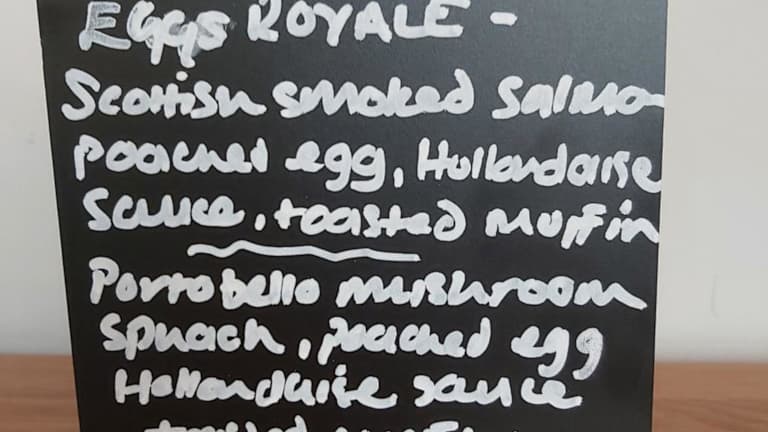 Eggs ROYALE -
Scottish smoked salmon
poached egg, Hollandaise
sauce, toasted muffin
Portobello mushroom
spinach, poached egg
Hollandaise sauce
toasted muffin